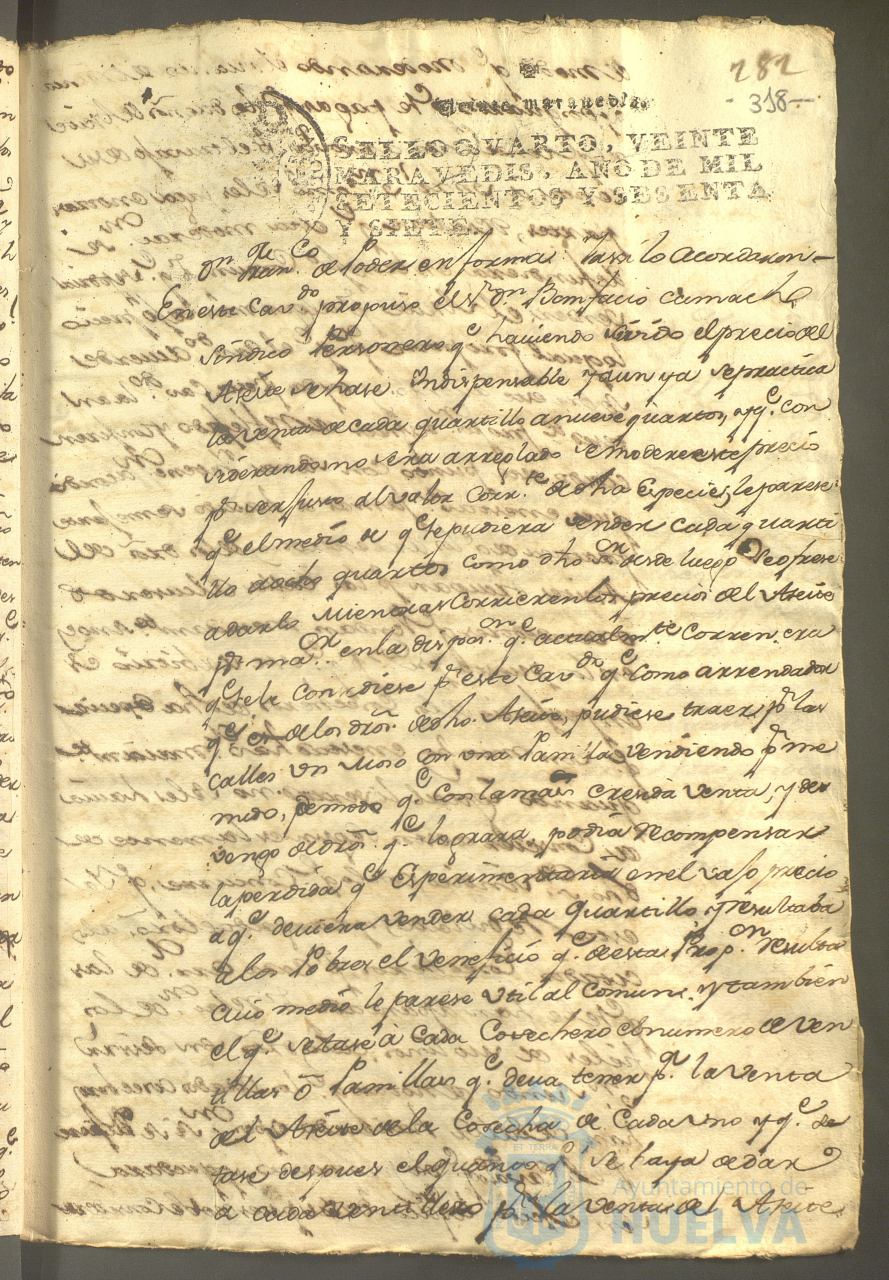 282
318
Veinte maravedis.
SELLO QVARTO, VEINTE
MARAVEDIS, AÑO DE MIL
SETECIENTOS Y SESENTA
Y SIETE.
dn. Franco. de Poder en forma: Assi lo acordaron
En este Cavdo. propuso el Sr. Dn. Bonifacio Camacho
Síndico Personero qe. haviendo subido el precio del
Aseite se hase Indispensable y aun ya se practica
la venta de cada quartillo a nueve quartos, y qe. con
siderando no será arreglado se modere este precio
pr. ser justo al valor corrte. de dha Especie, le parese
qe. el medio de qe. se pudiera vender cada quarti
llo a ocho quartos como dho Sr. desde luego se ofrese
a darlo mientras corrieren los precios del Aseite
pr. maor. en la disposn. qe. actualmte. corren, era
qe. se le consediese pr. este Cavdo. qe. como arrendador
qe. es de los dros. de dho. Aseite, pudiese traer pr. las
calles un Moso con una Panilla vendiendo pr. me
nudo, de modo qe. con la mas cresida venta, y de
vengo de dros. qe. lograra, podia recompensar
la perdida qe. Esperimentaria en el vajo precio
a qe. deviera vender cada quartillo y resultaba
a los Pobres el veneficio qe. de esta Propon. resulta
cuio medio le parese util al Comun, y tambien
el qe. se tase à cada Cosechero el numero de ven
tillas ò Panillas qe. deva tener pa. la venta
del Aseite de la Cosecha de Cada uno y qe. de
tase despues el quanto qe. se haya de dar
a cada ventillero pr. la venta del Aseite
Ayuntamiento de
HUELVA